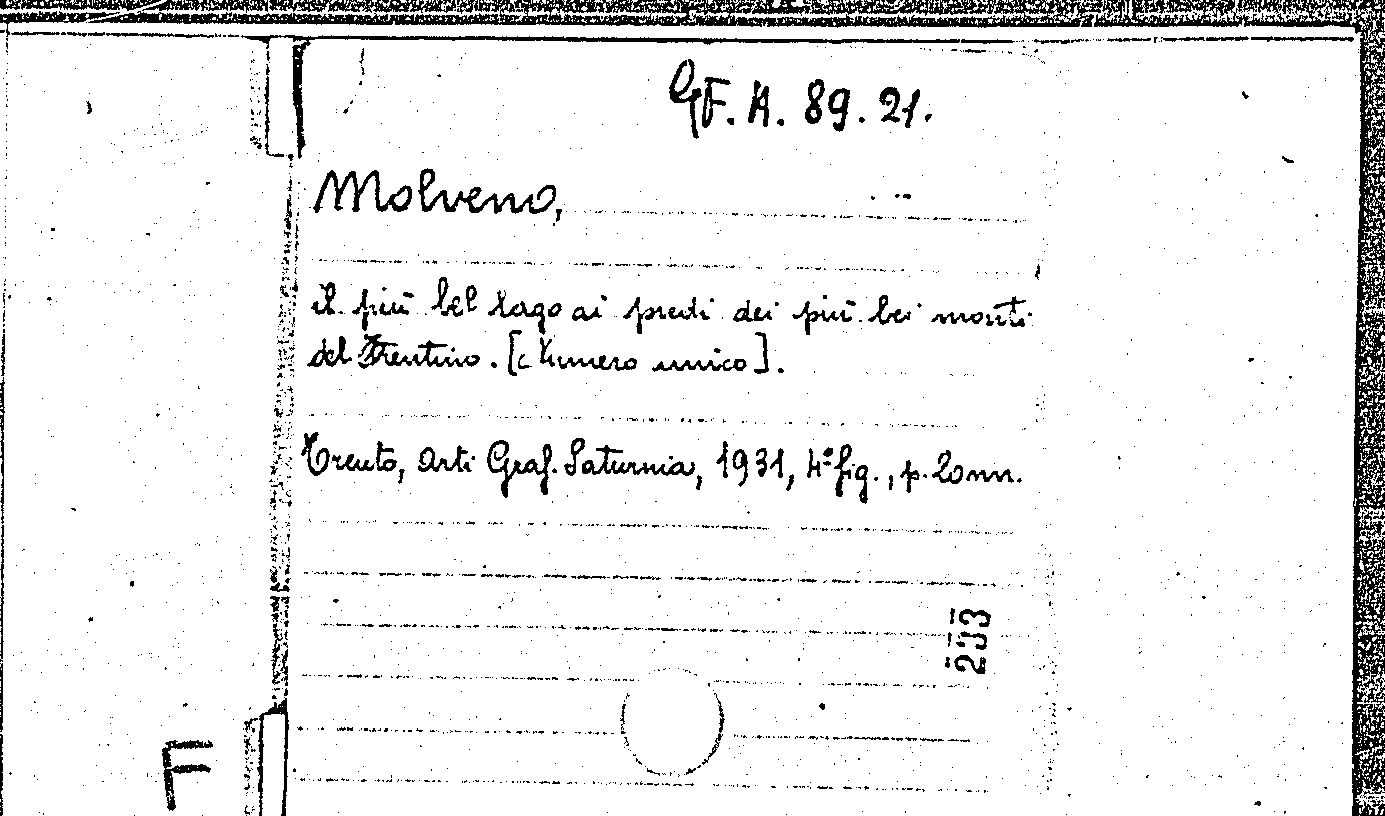 GF. A. 89. 21.
Molveno,
il più bel lago ai piedi dei più bei monti
del Trentino. [Numero unico].
Trento, Arti Graf. Saturnia, 1931, 4° fig., p. 20 nn.
233
F